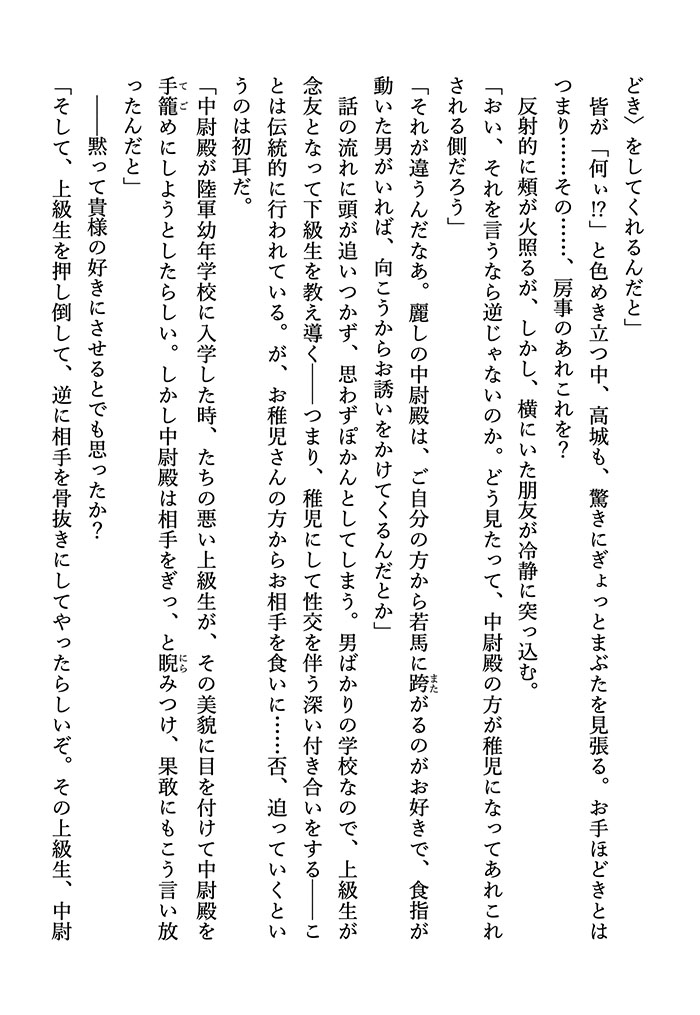 どき〉をしてくれるんだと」
皆が「何ぃ!?」と色めき立つ中、高城も、驚きにぎょっとまぶたを見張る。お手ほどきとは
つまり……その……、房事のあれこれを?
反射的に頰が火照るが、しかし、横にいた朋友が冷静に突っ込む。
「おい、それを言うなら逆じゃないのか。どう見たって、中尉殿の方が稚児になってあれこれ
される側だろう」
「それが違うんだなあ。麗しの中尉殿は、ご自分の方から若馬に跨がるのがお好きで、食指が
動いた男がいれば、向こうからお誘いをかけてくるんだとか」
話の流れに頭が追いつかず、思わずぽかんとしてしまう。男ばかりの学校なので、上級生が
念友となって下級生を教え導く――つまり、稚児にして性交を伴う深い付き合いをする――こ
とは伝統的に行われている。が、お稚児さんの方からお相手を食いに……否、迫っていくとい
うのは初耳だ。
「中尉殿が陸軍幼年学校に入学した時、たちの悪い上級生が、その美貌に目を付けて中尉殿を
手籠めにしようとしたらしい。しかし中尉殿は相手をぎっ、と睨みつけ、果敢にもこう言い放
ったんだと」
――黙って貴様の好きにさせるとでも思ったか?
「そして、上級生を押し倒して、逆に相手を骨抜きにしてやったらしいぞ。その上級生、中尉